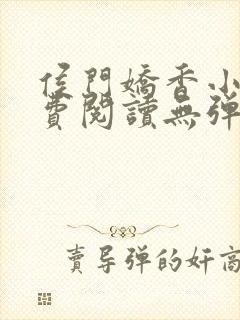 侯門嬌香小
費閱讀無彈
賣导弹的奸商